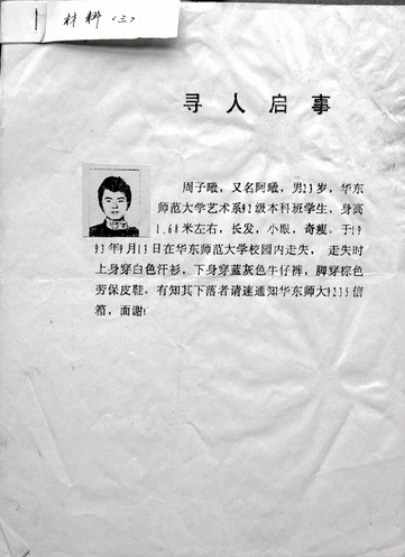 材料(三)
寻人启事
周子曦，又名阿曦，男23岁，华东
师范大学艺术系92级本科班学生，身高
1.68米左右，长发，小眼，奇瘦。于19
93年9月13日在华东师范大学校园内走失，走失时
上身穿白色汗衫，下身穿蓝灰色牛仔裤，脚穿棕色
劳保皮鞋。有知其下落者请速通知华东师大9235信
箱，面谢!